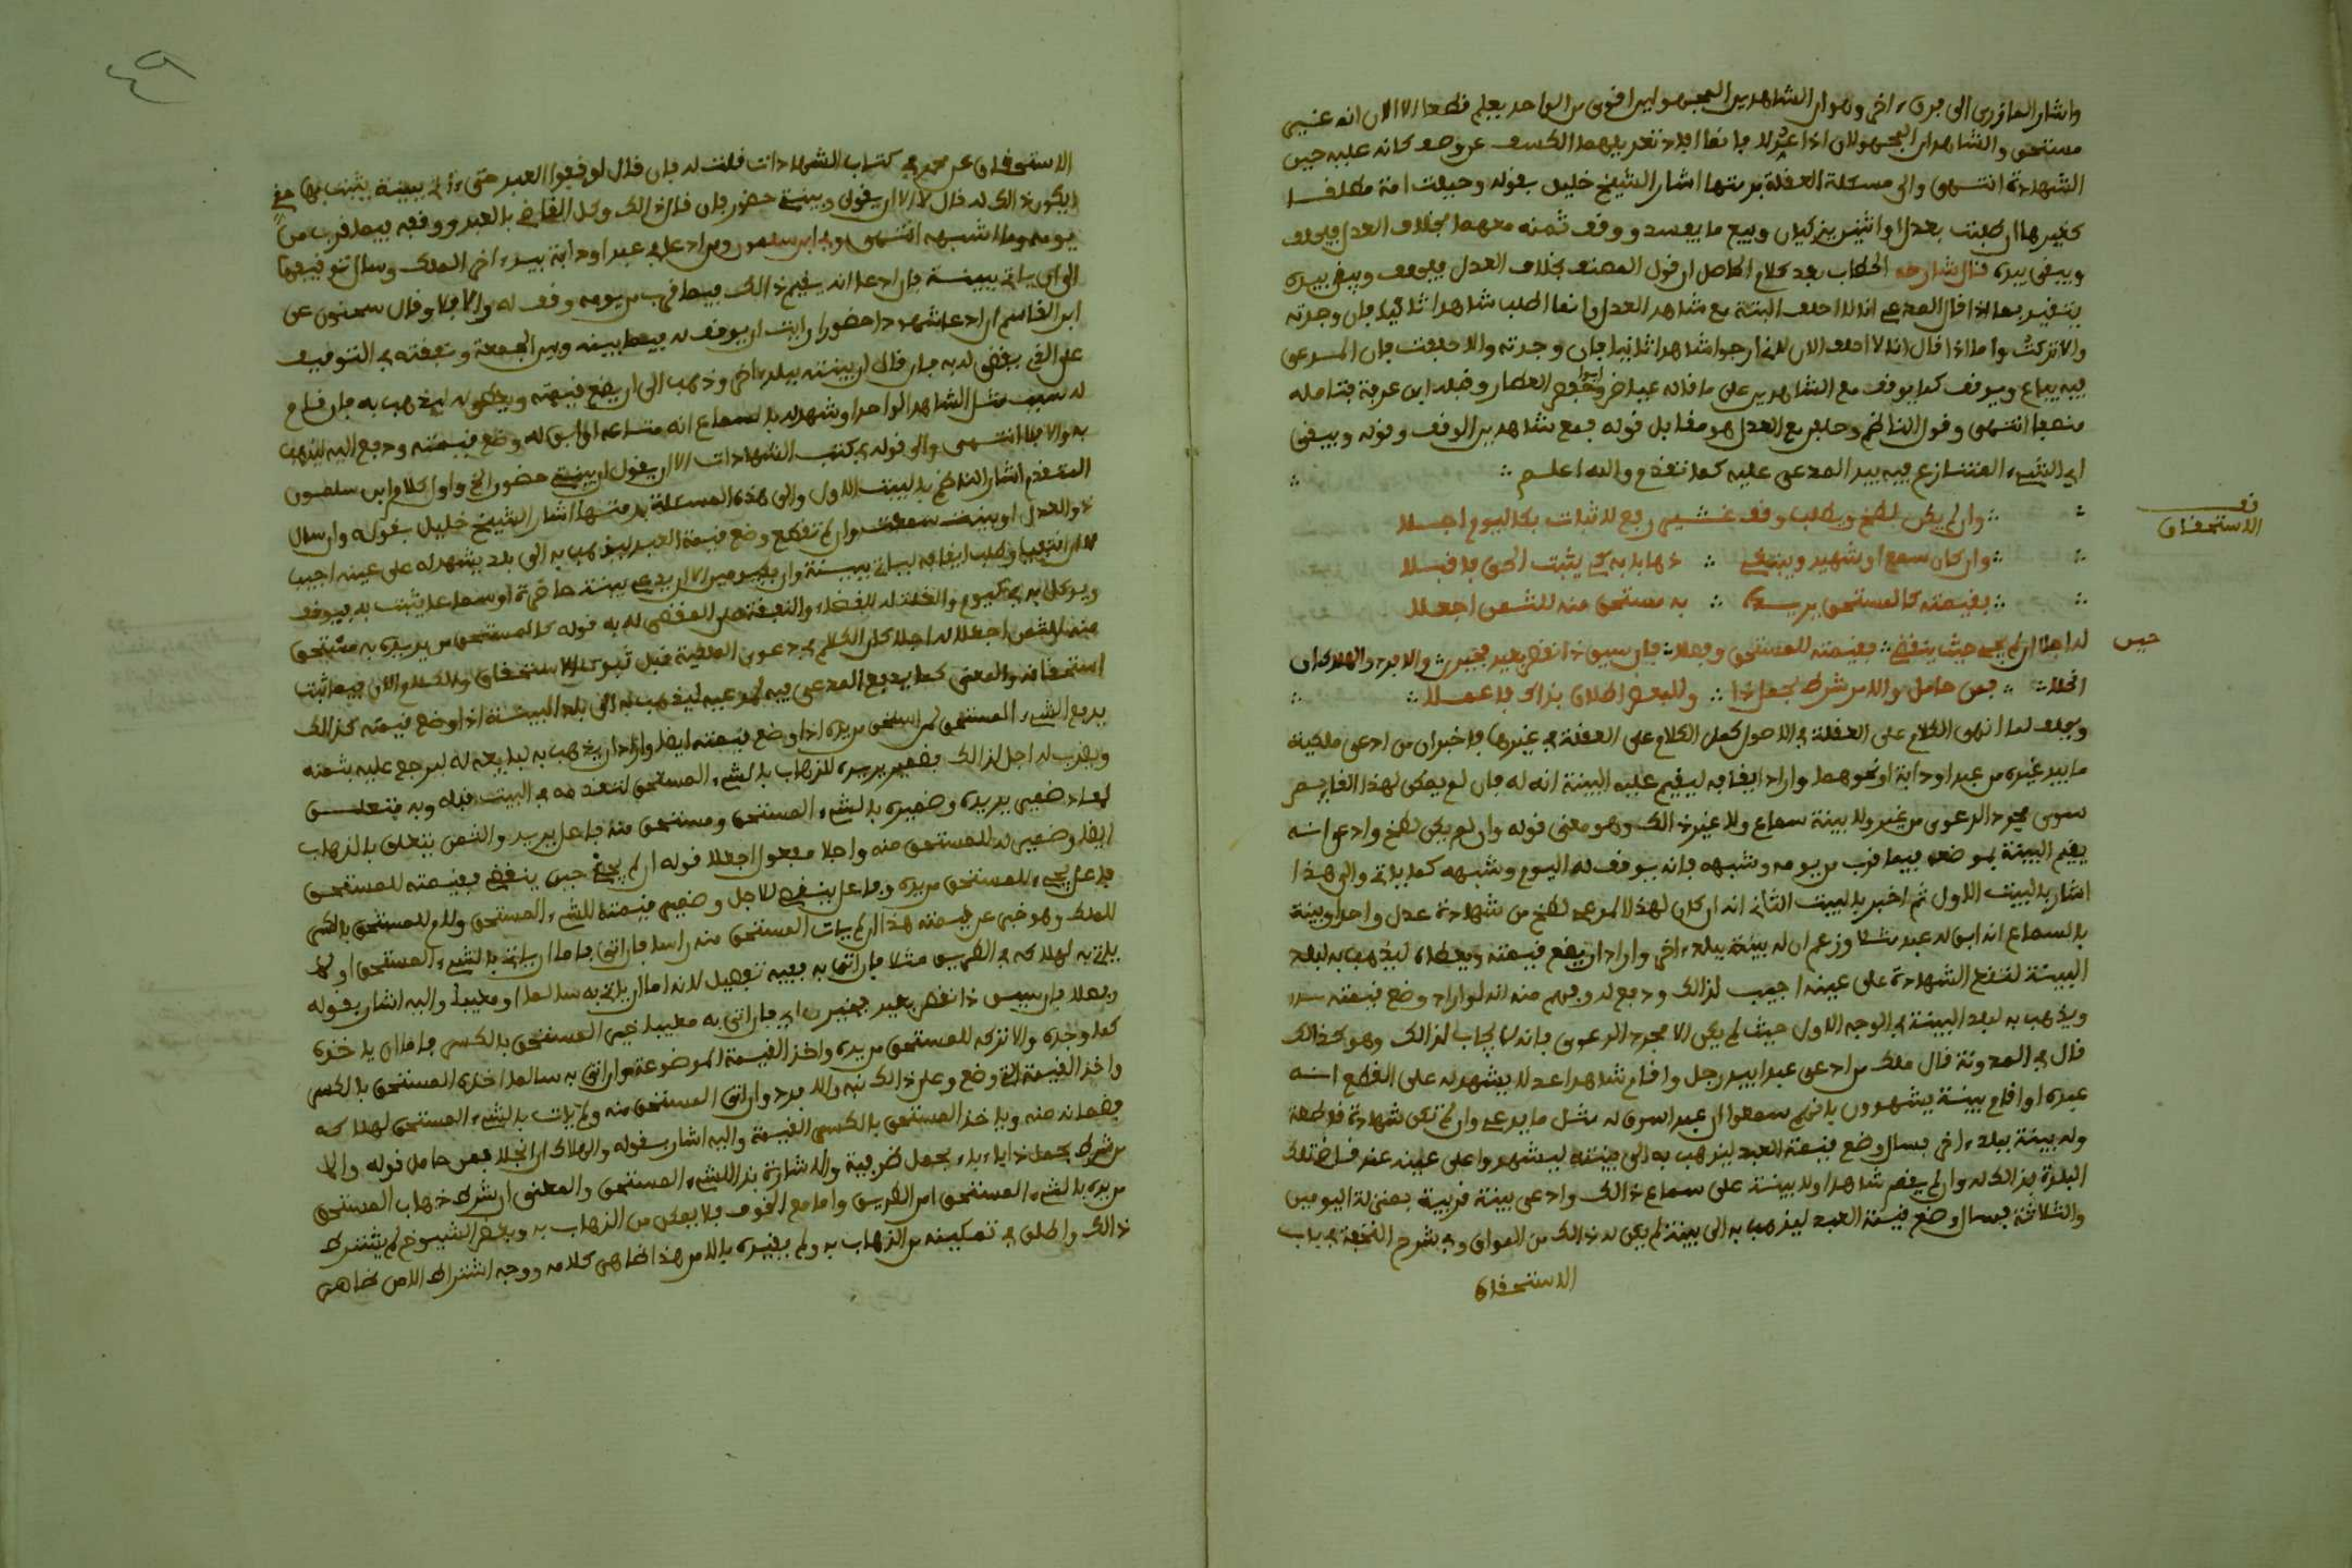 واشار المازري الى فرق اخر وهو ان الشاهدين المجهولين اقوى من الواحد بعلم قطعا الا الان انه غير
مستحق والشاهدان المجهولان اذا عدلا فانما افادتعديلهما الكشف عن وصف كانا عليه حين
الشهادة انتهى والى مسئلة العقلة برمتها اشار الشيخ خليل بقوله وحيلت امة مطلقا
كغيرها ان طلبت بعدل او اثنين يزكيان وبيع ما يفسد ووقف ثمنه معهما بخلاف العدل فيحلف
ويبقى بيده قال شارحه الحطاب بعد كلام الحاصل ان قول المصنف بخلاف العدل فيحلف ويبقى بيده
يتقيد بما اذا قال المدعي انا لا احلف البتة مع شاهد العدل وانما اطلب شاهدا ثانيا فان وجدته
والا تركت واما اذا قال انا لا احلف الان لاني ارجوا شاهدا ثانيا فان وجدته والا حلفت فان المدعى
فيه يباع ويوقف كما يوقف مع الشاهدين على ما قاله عياض وابو حفص العطار وقبله ابن عرفة فتامله
منصفا انتهى وقول الناظم وحلف مع العدل هو مقابل قوله فمع شاهدين الوقف وقوله ويبقى
اي الشيء المتنازع فيه بيد المدعى عليه كما تقدم والله اعلم
وان لم يكن لطخ ويطلب وقف شيء رفع لاثبات بكاليوم اجلا
وان كان سمع او شهيد وينبغي ذهابا به كي يثبت الحق فاقبلا
بقيمته كالمستحق يريده به مستحق منه للثمن اجعلا
نعـ
الاستحقاق
له اجلا ان لم يجئ حيث ينقضي فقيمته للمستحق وفصلا فان سيق ذا نقص بعيد فخيرن والا فرد والهلاك ان
حين
انجلا فمن حامل والامن شرط لحمل ذا وللبعض اطلاق بذاك فاعملا
وبعد لما انهى الكلام على العقلة في الاصول كمل الكلام على العقلة في غيرها فاخبر ان من ادعى ملكية
ما بيد غيره من عبد او دابة او نحوهما واراد ايقافه ليقيم عليه البينة انه له فان لم يكن لهذا القايم
سوى مجرد الدعوى من غير ولا بينة سماع ولا غير ذالك وهو معنى قوله وان لم يكن لطخ وادعى انه
يقيم البينة بموضعه فيما قرب من يومه وشبهه فانه يوقف له اليوم وشبهه كما ياتي والى هذا
اشار بالبيت الاول ثم اخبر بالبيت الثاني انه ان كان لهذا المدعي لطخ من شهادة عدل واحد او بينة
بالسماع انه ابق له عبد مثلا وزعم ان له بينة ببلد اخر واراد ان يضع قيمته ويعطاه ليذهب به لبلد
البينة لتقع الشهادة على عينه اجيب لذالك ودفع له وفهم منه انه لو اراد وضع قيمته
ويذهب به لبلد البينة في الوجه الاول حيث لم يكن الا مجرد الدعوى فانه لا يجاب لذالك وهو كذالك
قال في المدونة قال ملك من ادعى عبدا بيد رجل واقام شاهدا عدلا يشهد له على القطع انه
عبده او اقام بينة يشهدون بانهم سمعوا ان عبدا سرق له مثل ما يدعي وان لم تكن شهادة قاطعة
وله بينة ببلد اخر فسال وضع قيمة العبد ليذهب به الى بينته ليشهدوا على عينه عند قاضي تلك
البلدة فذالك له وان لم يقم شاهدا ولا بينة على سماع ذالك وادعى بينة قريبة بمنزلة اليومين
والثلاثة فسال وضع قيمة العبد ليذهب به الى بينته لم يكن له ذالك من المواق وفي شرح التحفة في باب
الاستحقاق
٤٩
الاستحقاق عن محمد في كتاب الشهادات قلت له فان قال لوقفوا العبد حتى اتي ببينة يثبت بها حقي
ايكون ذالك له قال لا الا ان يقول وبينتي حضور فان قال ذالك وكل القاضي بالعبد ووقفه فيما قرب من
يومه وما اشبهه انتهى وفي ابن سلمون ومن ادعى في عبد او دابة بيد اخر الملك وسال توقيفها
الى ان ياتي ببينة فان ادعا انه يقيم ذالك فيما قرب من يومه وقف له والا فلا وقال سحنون عن
ابن القاسم ان ادعا شهودا حضورا رايت ان يوقف له فيما بينه وبين الجمعة ونفقته في التوقيف
على الذي يقضى له به فان قال ان بينته ببلد اخر وذهب الى ان يضع قيمته ويمكن له ليذهب به فان قام
له سبب مثل الشاهد الواحد او شهد له بالسماع انه متاعه او ابق له وضع قيمته ودفع اليه ليذهب
به والا فلا انتهى والى قوله في كتب الشهادات الا ان يقول ان بينتي حضور الخ واول كلام ابن سلمون
المتقدم اشار الناظم بالبيت الاول والى هذه المسئلة برمتها اشار الشيخ خليل بقوله وان سال
ذو العدل او بينة سمعت وان لم تقطع وضع قيمة العبد ليذهب به الى بلد يشهد له على عينه اجيب
لا ان انتفيا وطلب ايقافه لياتي ببينة وان بكيومين الا ان يدعي بينة حاضرة او سماعا يثبت به فيوقف
ويوكل به في كيوم والغلة له للقضاء والنفقة على المقضي له به قوله كالمستحق من يده به مستحق
منه للثمن اجعلا له اجلا كان الكلام في دعوى الملكية قبل ثبوت الاستحقاق والكلام الان فيما ثبت
استحقاقه والمعنى كما يدفع المدعى فيه لمدعيه ليذهب به الى بلد البينة اذا وضع قيمته كذالك
يدفع الشيء المستحق لمن استحق من يده اذا وضع قيمته ايضا واراد ان يذهب به لبايعه له ليرجع عليه بثمنه
ويضرب له اجل لذالك فضمير يريده للذهاب بالشيء المستحق لتقدمه في البيت قبله وبه متعلق
ايضا وضمير له للمستحق منه واجلا مفعول اجعلا قوله ان لم يجئ حين ينقضي فقيمته للمستحق
فاعل يجيء للمستحق من يده وفاعل ينقضي للاجل وضمير قيمته للشيء المستحق ولام للمستحق بالكسر
للملك وهو خبر عن قيمته هذا ان لم يات المستحق منه راسا فان اتى فاما ان ياتي بالشيء المستحق او لا
ياتي به لهلاكه في الطريق مثلا فان اتى به ففيه تفصيل لانه اما ان ياتي به سالما او معيبا واليه اشار بقوله
وفصلا فان سيق ذا نقص بعيب فخيرن اي فان اتى به معيبا خير المستحق بالكسر فاما ان ياخذه
كما وجده والا تركه للمستحق من يده واخذ القيمة الموضوعة وان اتى به سالما اخذه المستحق بالكسر
واخذ القيمة الذي وضع وعلى ذالك نبه والا فرد وان اتى المستحق منه ولم يات بالشيء المستحق لهلاكه
فضمانه منه وياخذ المستحق بالكسر القيمة واليه اشار بقوله والهلاك ان انجلا فمن حامل قوله والا
من شرط لحمل ذا الباء بحمل ظرفية والاشارة بذا للشيء المستحق والمعنى ان شرط ذهاب المستحق
من يده بالشيء المستحق امن الطريق واما مع الخوف فلا يمكن من الذهاب به وبعض الشيوخ لم يشترط
ذالك واطلق في تمكينه من الذهاب به ولم يقيده بالامن هذا ظاهر كلامه ووجه اشتراط الامن ظاهر